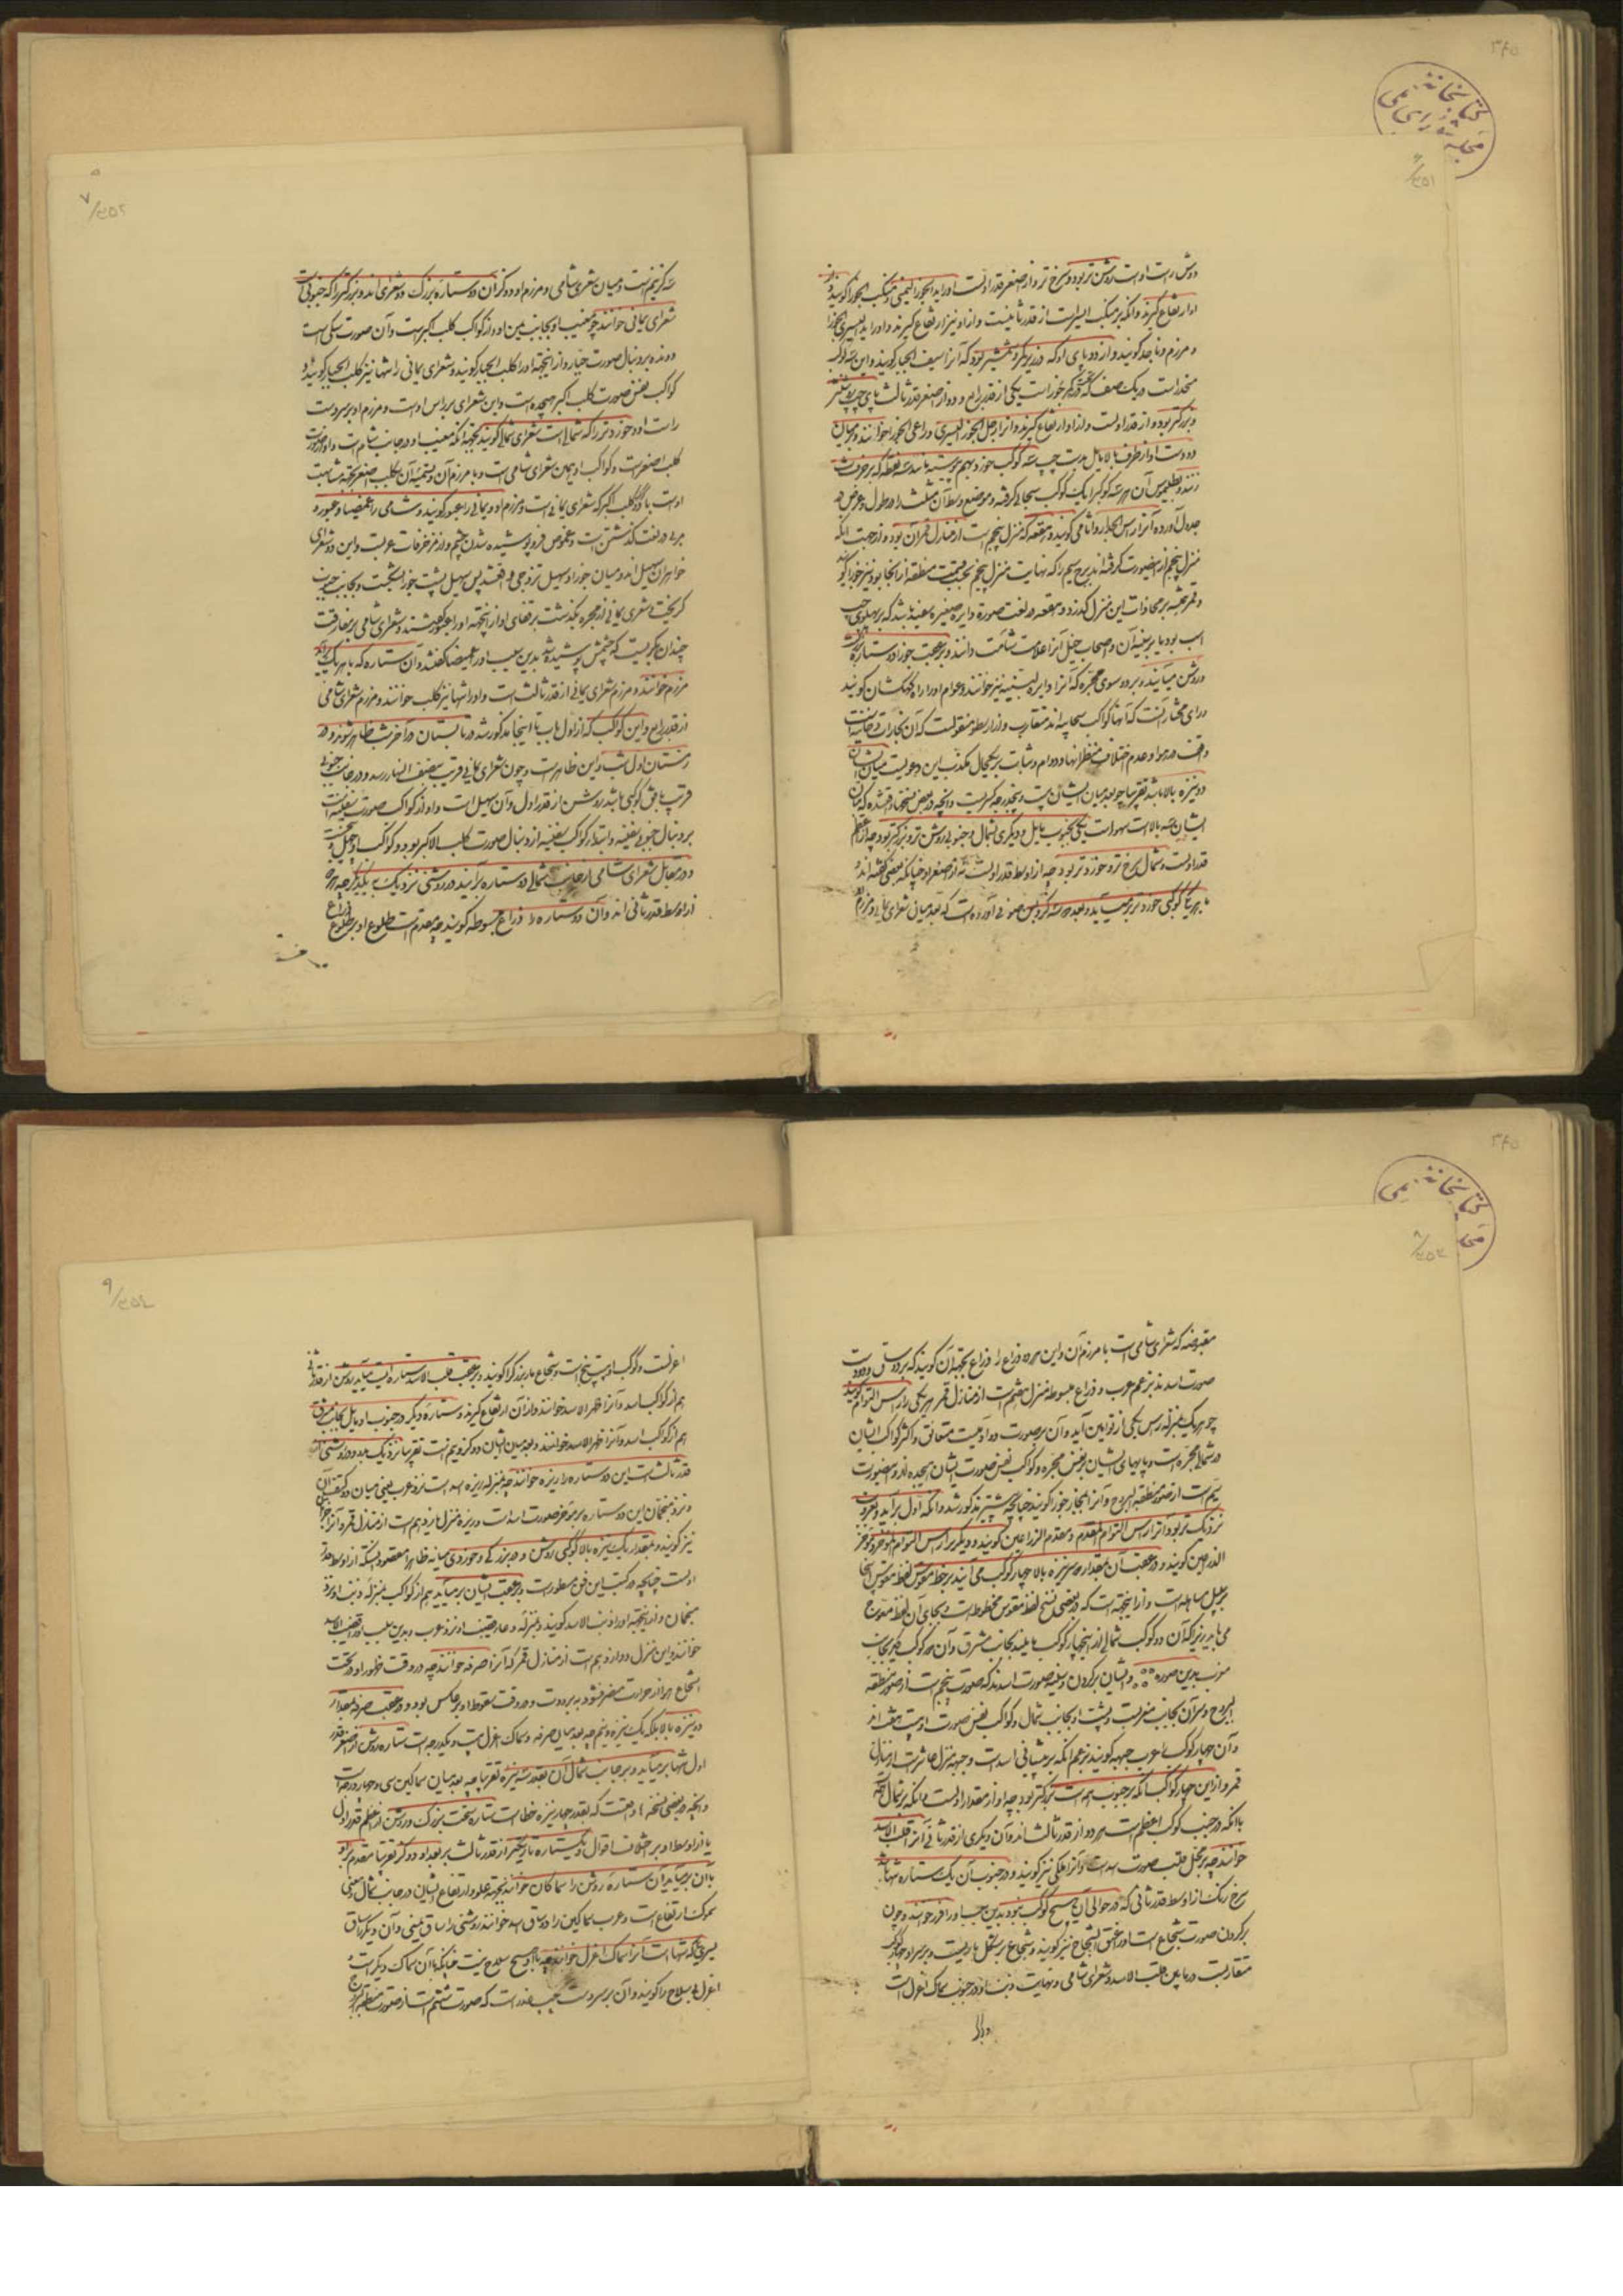 کتابخانه
مجلس شورای ملی
دوش راست اوست روشن تر بود و سرخ تر و از اصغر قدر اولست و او را ید الجوزا الیمنی و منکب الجوزا گویند و از
او ارتفاع گیرند و آنکه بر منکب ایسر است از قدر ثانیست و از او نیز ارتفاع گیرند و او را ید الیسری الجوزا
و مرزم و ناجد گویند و از دو پای او که در زیر کمر و شمشیر بود که آنرا سیف الجبار گویند و این سه کوکب
است در یک صف که یکی از قدر رابع و دو از اصغر قدر ثالث پای چپ روشنتر
و بزرگتر بود و از قدر اولست و از او ارتفاع گیرند و آنرا رجل الجوزا الیسری و راعی الجوزا خوانند و میان
دو دست او از طرف بالا مایل بدست چپ سه کوکب خورد بهم پیوسته مانند سه نقطه که بر حرف ث
زنند و بطلمیوس آن هر سه کوکب را یک کوکب سحابی گرفته و موضع وسط آن مثلث را در طول و عرض در
جدول آورده آنرا راس الجبار و اثافی گویند و هقعه که منزل پنجم است از منازل قمر آن بود و از جهت آنکه
منزل پنجم از این صورت گرفته‌اند برج سیم را که نهایت منزل پنجم بحسب قسمت منطقه از آنجا بود نیز جوزا گویند
و قمر همیشه بر محاذات این منزل گذرد و هقعه در لغت صورة دایره صغیره سفید باشد که بر پهلوی چپ
اسب بود یا بر سینه آن و اصحاب خیل آنرا علامت شامت دانند و بر عقب جوزا دو ستاره
روشن میآیند و بر دو سوی مجره که آنرا دایره لبنیه نیز خوانند و عوام او را راه کهکشان گویند
و رای مختار آنست که آنها کواکب سحابیه اند متقارب و از ارسطو منقولست که آن بخارات دخانیست
واقف در هوا و عدم اختلاف منظر انها و دوام و ثبات بر یکحال مکذب این دعویست میان ایشان
دو نیزه بالا باشد تقریبا چه بعد میان ایشان بیست و پنج درجه کسریست و آنچه در بعضی نسخها واقع شده که میان
ایشان سه بالاست سهو است یکی بجنوب مایل و دیگری بشمال و جنوبی روشن تر و بزرگتر بود چه از اعظم
قدر اولست و شمالی سرخ تر و خوردتر بود چه از اوسط قدر اولست نه از اصغر او چنانکه بعضی گفته‌اند و
با هر یک کوکبی خورد برمیآید و بعد سه گز و ابن صوفی آورده است که بعد میان شعرای یمانی و مرزم
سه گز نیم است و میان شعری شامی و مرزم او دو گز آن دو ستاره بزرگ دو شعری‌اند و بزرگتر را که جنوبی است
شعرای یمانی خوانند چه مغیب او بجانب یمن است و او از کواکب کلب اکبر است و آن صورت سگی است
دونده بر دنبال صورت جبار و از اینجهة او را کلب الجبار گویند و شعرای یمانی را تنها نیز کلب الجبار گویند و
کواکب نفس صورت کلب اکبر هیجده است و این شعرای بر راس اوست و مرزم او بر سر دست
راست او و خوردتر را که شمالی است شعرای شامی گویند بجهة آنکه مغیب او در جانب شام است و او از صورت
کلب اصغر است و کواکب او همین شعرای شامی است و با مرزم آن و تسمیه آن بکلب اصغر بجهة مشابهت
اوست با کلب اکبر که شعرای یمانی است و مرزم او و یمانی را عبور گویند و شامی را غمیصا و عبور
در لغت گذشتن است و غموص فرو پوشیده شدن چشم و از مزخرفات عربست و این دو شعرای
خواهران سهیل اند و میان جوزا و سهیل تزوجی واقع شد پس سهیل پشت جوزا بشکست و بجانب جنوب
گریخت و شعری یمانی از مجره بگذشت بر قفای او از اینجهة او را عبور گفتند و شعرای شامی بر مفارقت
چندان بگریست که چشمش پوشیده شد بدین سبب او را غمیصا گفتند و آن ستاره که با هر یک برآید
مرزم خوانند و مرزم شعرای یمانی از قدر ثالث است و او را تنها نیز کلب خوانند و مرزم شعرای شامی
از قدر رابع و این کواکب که از اول باب تا اینجا مذکور شد در تابستان در آخر شب ظاهر شوند و در
زمستان اول شب و این ظاهر است و چون شعرای یمانی قریب بنصف النهار رسد و در جانب جنوب
قریب بافق کوکبی باشد روشن از قدر اول و آن سهیل است و او از کواکب صورت سفینه است
بر دنبال جنوبی سفینه و ابتدا کواکب سفینه از دنبال صورت کلب الاکبر بود و کواکب او چهل و پنجست
و در مقابل شعرای شامی از جانب شمالی دو ستاره برآیند در روشنی نزدیک به یکدیگر چه هر دو
از اوسط قدر ثانی اند و آن دو ستاره را ذراع مبسوطه گویند چه مقدم است طلوع او بر طلوع ذراع
مقبوضه که شعرای شامی است با مرزم آن و این هر دو ذراع را ذراع بجهة آن گویند که بر دو ساق و دو دست
صورت اسدند بزعم عرب و ذراع مبسوطه منزل هفتم است از منازل قمر هر یکی را راس التوام گویند
چه هر یک بمنزله راس یکی از توامین آید و آن بر صورت دو آدمیست متعانق و اکثر کواکب ایشان
در شمال مجره است و پایهای ایشان بر نفس مجره و کواکب نفس صورت ایشان هیجده‌اند و این صورت
سیم است از صور منطقه البروج و آنرا بمجاز جوزا گویند چنانچه پیشتر مذکور شد و آنکه اول برآید و بغروب
نزدیک تر بود آنرا راس التوام المقدم و مقدم الذراعین گویند و دیگر را راس التوام المؤخر و مؤخر
الذراعین گویند و در عقب آن بمقدار سه نیزه بالا چهار کوکب می‌آیند بر خط مقوس لفظ مقوس اینجا
بر سبیل مساهله است و از اینجهة است که در بعضی نسخ لفظ مقوس مخطوط است و بجای آن لفظ معوج
می‌باید زیرا که آن دو کوکب شمالی از اینچهار کوکب مایلند بجانب مشرق و آن دو کوکب دیگر بجانب
مغرب بدین صورة و ایشان بر گردن و سینه صورت اسدند که صورت پنجم است از صور منطقه
البروج و سر آن بجانب مغربست و پشت او بجانب شمال و کواکب نفس صورت او بیست و هفت‌اند
و آن چهار کوکب را عرب جبهه گویند بزعم آنکه بر پیشانی اسد است و جبهه منزل عاشر است از منازل
قمر و از این چهار کواکب آنکه بر جنوب همه است بزرگتر بود چه او از مقدار اولست و آنکه بر شمال
با آنکه در جنب کوکب اعظم است هر دو از قدر ثالث‌اند و آن دیگری از قدر ثانی آنرا قلب الاسد
خوانند چه بر محل قلب صورت اسد است و آنرا ملکی نیز گویند و در جنوب آن یک ستاره تنها باشد
سرخ رنگ از اوسط قدر ثانی که در حوالی آن هیچ کوکب نبود بدین سبب او را فرد خوانند و چون
بر گردن صورت شجاع است او را عنق الشجاع نیز گویند و شجاع بر شکل ماریست و بر سر او چهار کوکب
متقاربست در مابین قلب الاسد و شعرای شامی و نهایت ذنب او در جنوب سماک اعزل است
اعزلست و کواکب او بیست و پنج است و شجاع مار بزرگ را گویند و بر عقب قلب الاسد ستارهٔ بیاید روشن از قدر ثانی
هم از کواکب اسد و آنرا ظهر الاسد خوانند و از آن ارتفاع گیرند و ستاره دیگر در جنوب او مایل بجانب مشرق
هم از کواکب اسد و آنرا ظهر الاسد خوانند و بعد میان ایشان دو گز و نیم است تقریبا نزدیک بدو و در روشنی از
قدر ثالث است این دو ستاره را زبره خوانند چه بمنزله زبره اسد است نزد عرب یعنی میان دو کتف آن
و نزد منجمان این دو ستاره بر موخر صورت اسد است و زبره منزل یازدهم است از منازل قمر و آنرا
نیز گویند و بمقدار یک نیزه بالا کوکبی روشن و در بزرگی و خوردی میانه ظاهرا مقصود اینستکه از اوسط قدر
اولست چنانچه در کتب این فن مسطور است بر عقب ایشان برمیآید هم از کواکب بمنزله ذنب او نزد
منجمان و از اینجهة او را ذنب الاسد گویند و بمنزله وعاء قضیب او نزد عرب و بدین سبب او را قضیب الاسد
خوانند و این منزل دوازدهم است از منازل قمر که آنرا صرفه خوانند چه در وقت ظهور او در تحت
الشعاع هوا از حرارت منصرف شود به برودت و در وقت سقوط او بر عکس بود و در عقب صرفه بمقدار
دو نیزه بالا بلکه یک نیزه و نیم چه بعد میان صرفه و سماک اعزل بیست و یکدرجه است ستاره روشن از اصغر قدر
اول تنها برمیآید و بر جانب شمال آن بقدر سه نیزه تقریبا چه بعد میان سماکین سی و چهار درجه است
و آنچه در بعضی نسخه ها واقعست که بقدر چهار نیزه خطاست ستاره سخت بزرگ و روشن از اعظم قدر اول
یا از اوسط او بر اختلاف اقوال و یکستاره تاریکتر از قدر ثالث بر بعد او دو گز تقریبا مقدم بر او
با آن برمیآید آن ستاره روشن را سماکان خوانند بجهة علو و ارتفاع ایشان در جانب شمال و معنی
سموک ارتفاع است و عرب سماکین را دو ساق اسد خوانند روشنی را ساق یمینی و آن دیگر را ساق
یسری و آنکه تنها است آنرا سماک اعزل خوانند چه با او هیچ سلاح نیست چنانکه با آن سماک دیگر است و
اعزل بی سلاح را گویند و آن بر سر دست چپ عذراست که صورت ششم است از صور منطقة البروج